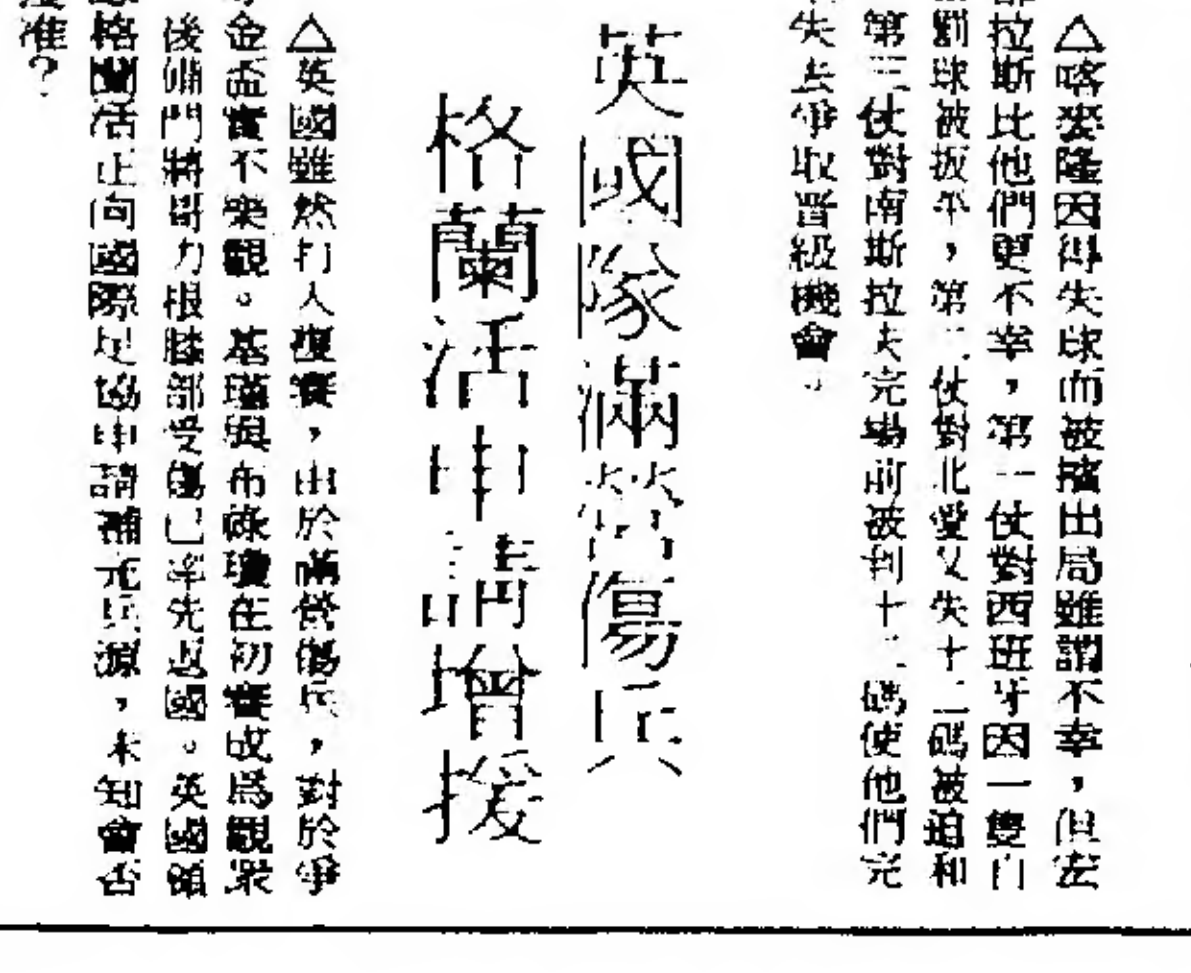 △喀麥隆因得失球而被擯出局雖謂不幸，但宏
都拉斯比他們更不幸，第一仗對西班牙因一隻自
罰球被扳平，第二仗對北愛又失十二碼被迫和
第三仗對南斯拉夫完場前被判十二碼使他們完
失去爭取晉級機會。
英國隊滿營傷兵
格蘭活申請增援
△英國雖然打入複賽，由於滿營傷兵，對於爭
金盃實不樂觀。基瑾與布祿瓊在初賽成爲觀衆
後備門將哥力根膝部受傷已率先返國。英國領
格蘭活正向國際足協申請補充兵源，未知會否
准？